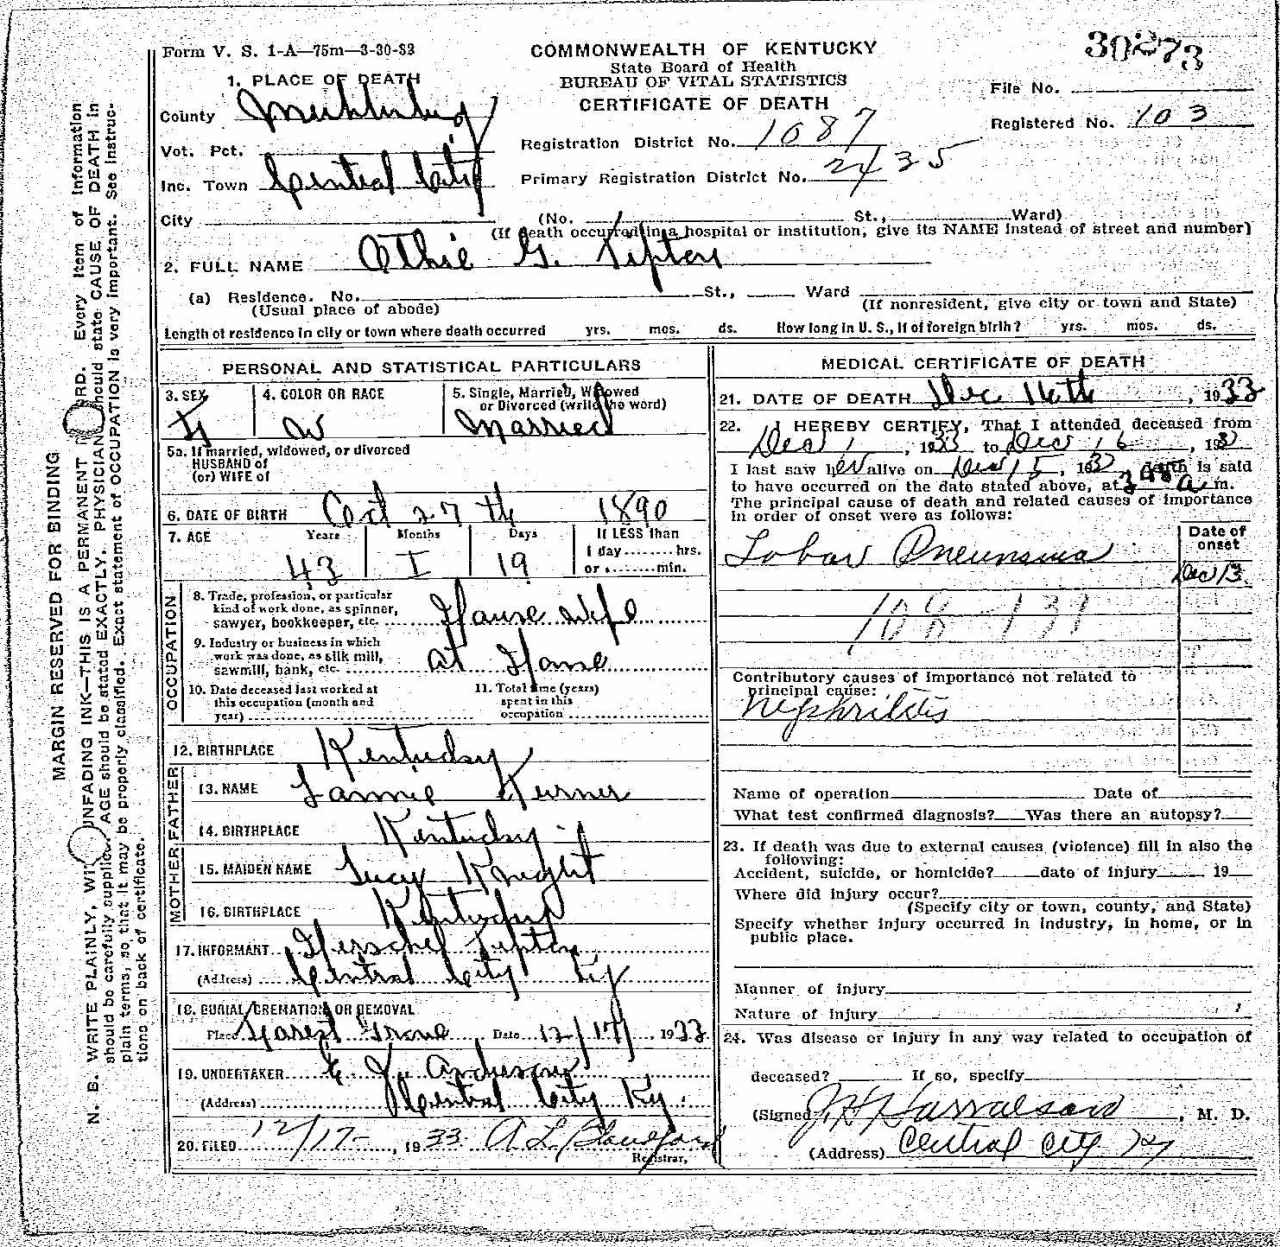 30273
Form V. S. 1-A—75m—3-30-32
COMMONWEALTH OF KENTUCKY
State Board of Health
BUREAU OF VITAL STATISTICS
CERTIFICATE OF DEATH
File No.
Registered No. 103
1. PLACE OF DEATH
County Muhlenberg
Vot. Pct.
Inc. Town Central City
City
Registration District No. 1087
Primary Registration District No. 2435
(No. St., Ward)
(If death occurred in a hospital or institution, give its NAME instead of street and number)
2. FULL NAME Othie G. Tipton
(a) Residence. No. St., Ward
(Usual place of abode) (If nonresident, give city or town and State)
Length of residence in city or town where death occurred yrs. mos. ds. How long in U. S., if of foreign birth? yrs. mos. ds.
PERSONAL AND STATISTICAL PARTICULARS
3. SEX F
4. COLOR OR RACE W
5. Single, Married, Widowed
or Divorced (write the word)
Married
5a. If married, widowed, or divorced
HUSBAND of
(or) WIFE of
6. DATE OF BIRTH Oct 27th 1890
7. AGE Years Months Days If LESS than
43 I 19 1 day hrs.
or min.
OCCUPATION
8. Trade, profession, or particular
kind of work done, as spinner,
sawyer, bookkeeper, etc. House wife
9. Industry or business in which
work was done, as silk mill,
sawmill, bank, etc. at Home
10. Date deceased last worked at
this occupation (month and
year)
11. Total time (years)
spent in this
occupation
12. BIRTHPLACE Kentucky
FATHER
13. NAME Lannie Turner
14. BIRTHPLACE Kentucky
MOTHER
15. MAIDEN NAME Lucy Knight
16. BIRTHPLACE Kentucky
17. INFORMANT Herschel Tipton
(Address) Central City Ky
18. BURIAL, CREMATION OR REMOVAL
Place Forest Grove Date 12/17, 1933
19. UNDERTAKER Anderson
(Address) Central City Ky.
20. FILED 12/17-, 1933 A L Blandford
Registrar.
MEDICAL CERTIFICATE OF DEATH
21. DATE OF DEATH Dec 16th, 1933
22. I HEREBY CERTIFY, That I attended deceased from
Dec 1, 1933 to Dec 16, 193
I last saw her alive on Dec 15, 193 death is said
to have occurred on the date stated above, at 3 45 a m.
The principal cause of death and related causes of importance
in order of onset were as follows:
Date of
onset
Lobar Pneumonia
Dec 13
108-131
Contributory causes of importance not related to
principal cause:
Nephritis
Name of operation Date of
What test confirmed diagnosis? Was there an autopsy?
23. If death was due to external causes (violence) fill in also the
following:
Accident, suicide, or homicide? date of injury 19
Where did injury occur?
(Specify city or town, county, and State)
Specify whether injury occurred in industry, in home, or in
public place.
Manner of injury
Nature of injury
24. Was disease or injury in any way related to occupation of
deceased? If so, specify
(Signed) J H Harralson, M. D.
(Address) Central City Ky
MARGIN RESERVED FOR BINDING
N. B. WRITE PLAINLY, WITH UNFADING INK—THIS IS A PERMANENT RECORD. Every item of information
should be carefully supplied. AGE should be stated EXACTLY. PHYSICIANS should state CAUSE OF DEATH in
plain terms, so that it may be properly classified. Exact statement of OCCUPATION is very important. See instruc-
tions on back of certificate.